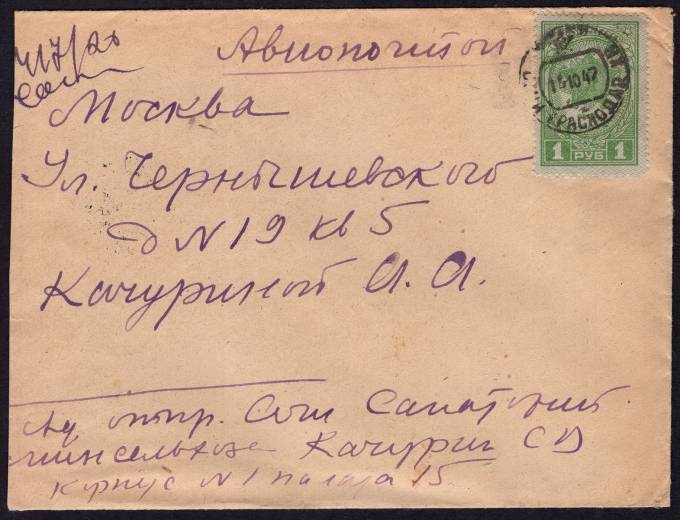 Авиопочтой
Москва
Ул. Чернышевского
Д N 19 кв 5
Качуриной А. А.
16 10 47
КРАСНОДАР
1 РУБ 1
Ад отпр. Сочи Санаторий
минсельхоза Качурин С Д
Корпус N 1 палата 15